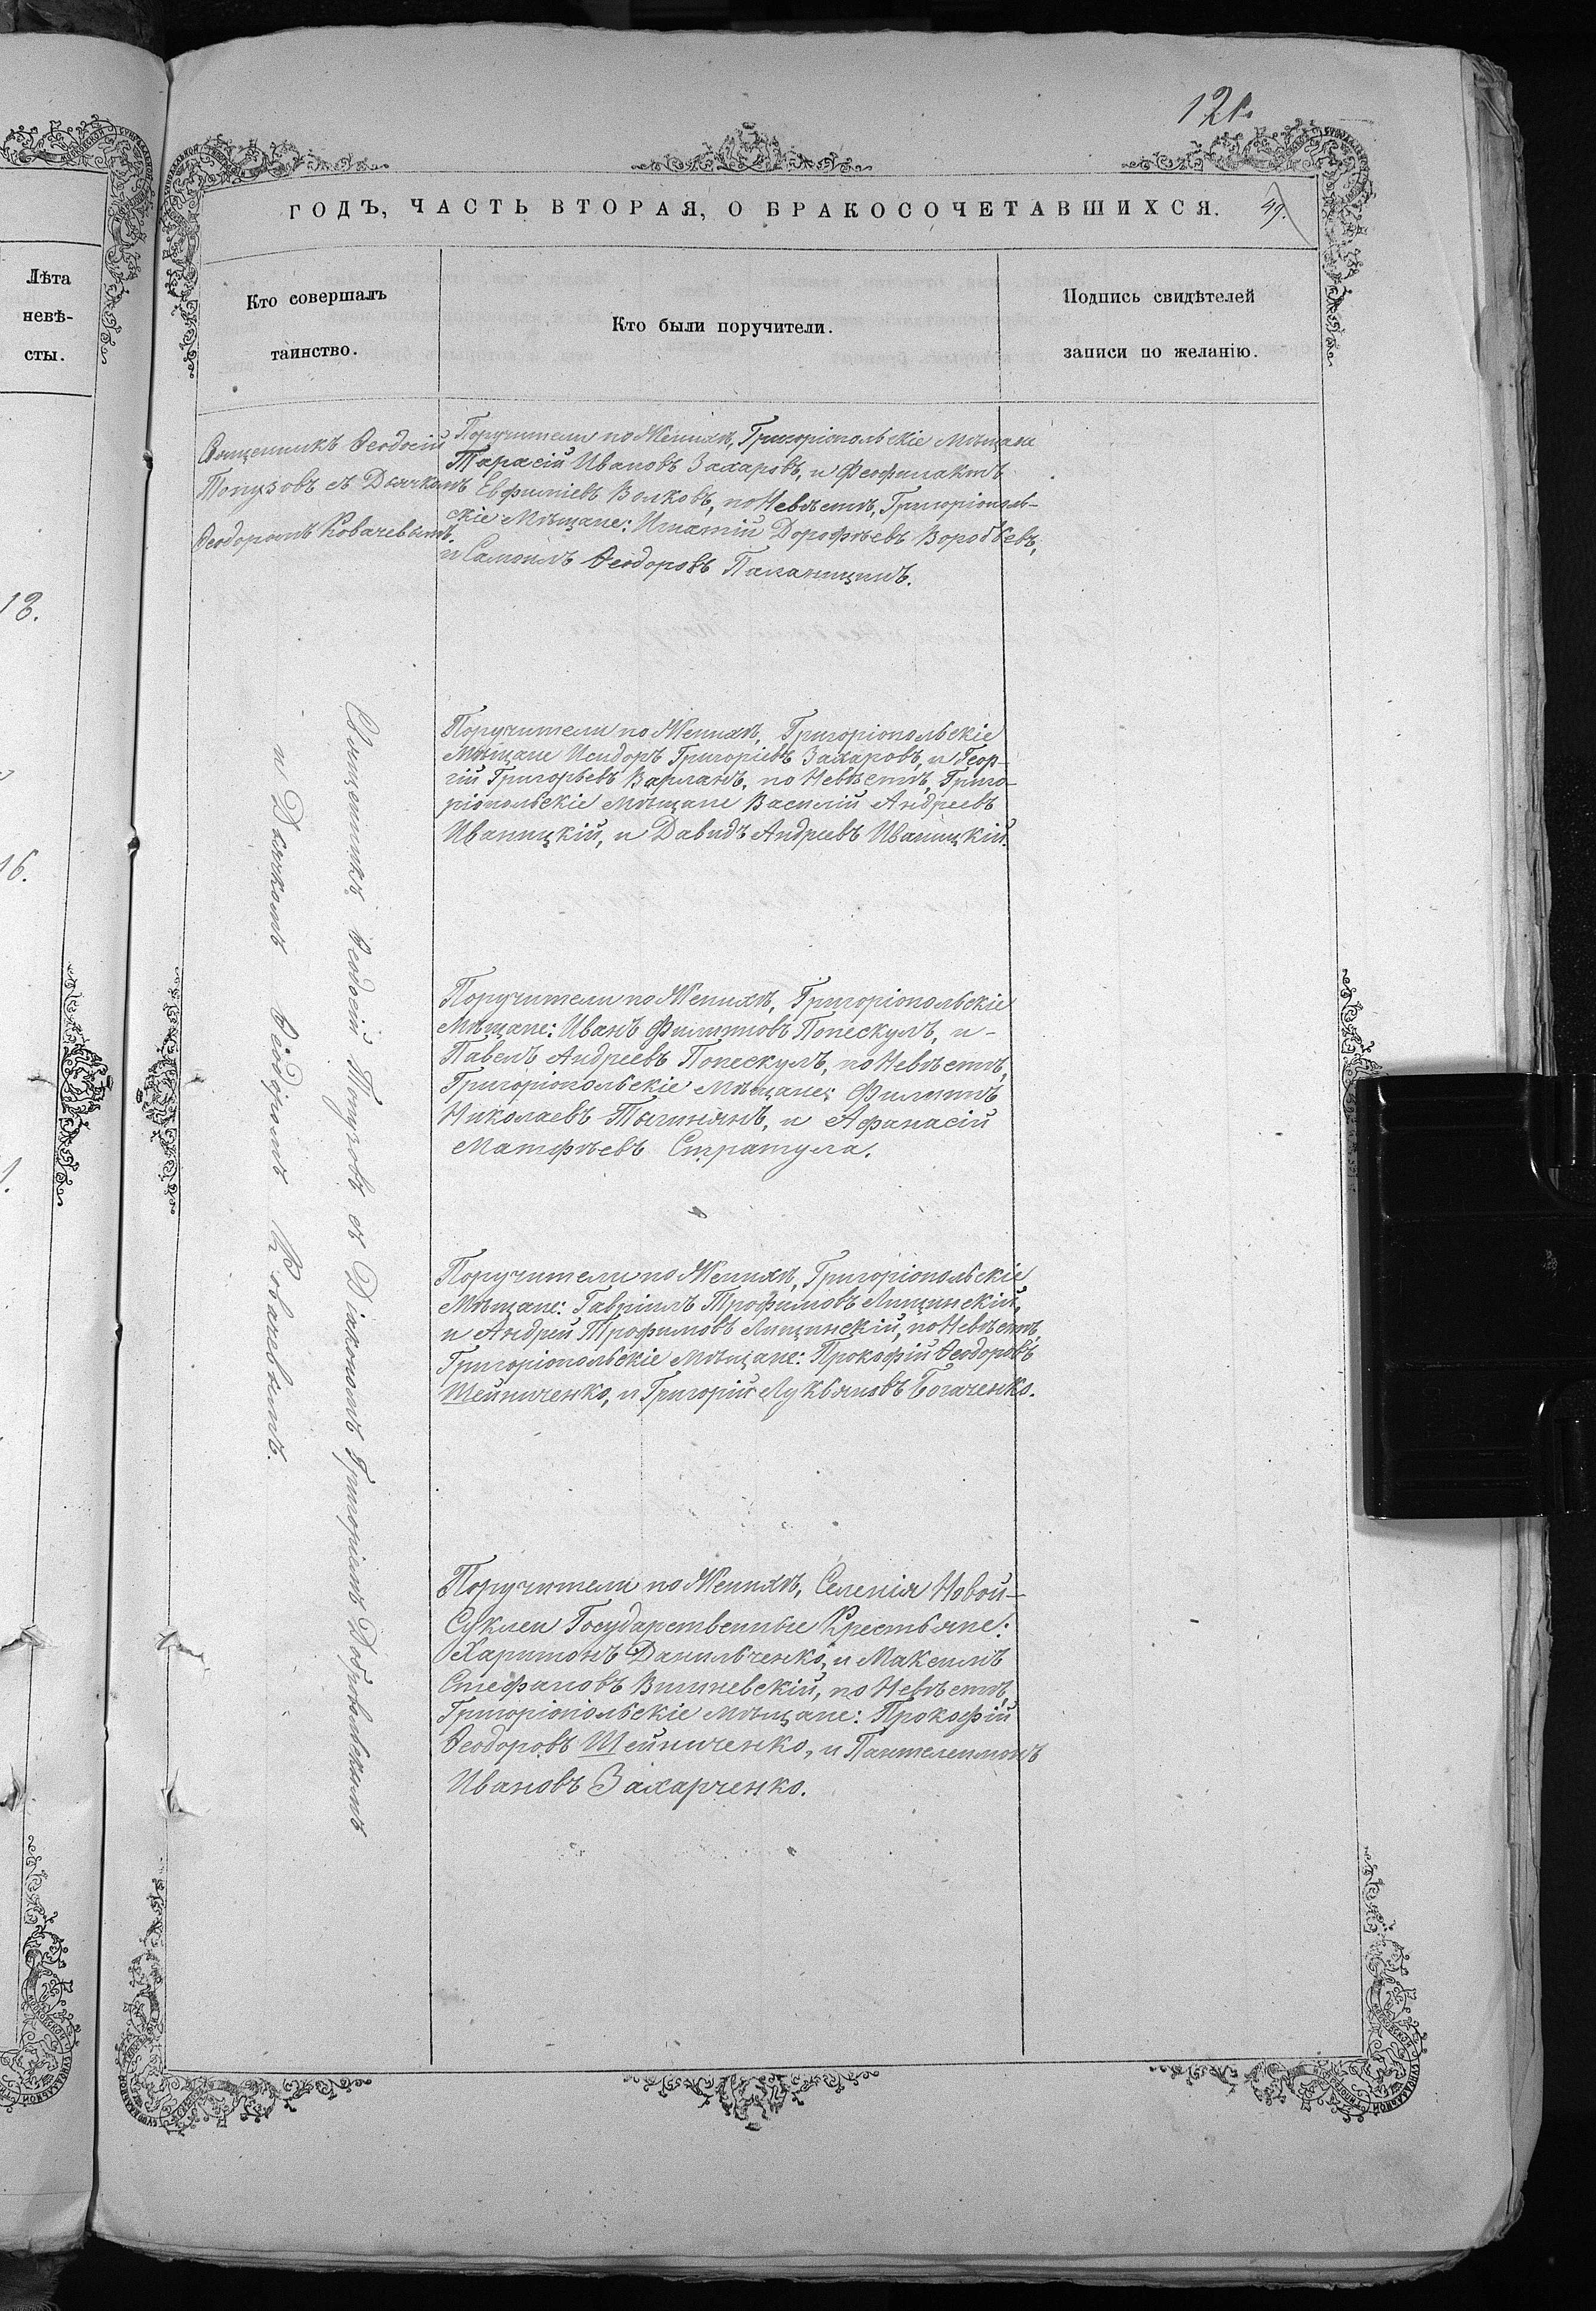 121.
ГОДЪ, ЧАСТЬ ВТОРАЯ, О БРАКОСОЧЕТАВШИХСЯ.
49.
Лѣта
невѣ-
сты.
18.
16.
Кто совершалъ
таинство.
Кто были поручители.
Подпись свидѣтелей
записи по желанію.
Священникъ Ѳеодосій
Топузовъ съ Дьячкомъ
Ѳеодоромъ Ковачевымъ.
Поручители по Женихѣ, Григоріопольскіе Мѣщане
Тарасій Ивановъ Захаровъ, и Феофилактъ
Евфиміевъ Волковъ, по Невѣстѣ, Григоріополь-
скіе Мѣщане: Игнатій Дорофѣевъ Воробьевъ,
и Самоилъ Ѳеодоровъ Паланицинъ.
Священникъ Ѳеодосій Топузовъ съ Діакономъ Григоріемъ Добровольскимъ
и Дьячкомъ Ѳеодоромъ Ковачевымъ.
Поручители по Женихѣ, Григоріопольскіе
Мѣщане Исидоръ Григоріевъ Захаровъ, и Геор-
гій Григорьевъ Варланъ, по Невѣстѣ, Григо-
ріопольскіе Мѣщане Василій Андреевъ
Иваницкій, и Давидъ Андреевъ Иваницкій.
Поручители по Женихѣ, Григоріопольскіе
Мѣщане: Иванъ Филипповъ Попескулъ, и-
Павелъ Андреевъ Попескулъ, по Невѣстѣ,
Григоріопольскіе Мѣщане: Филиппъ
Николаевъ Тычинянъ, и Афанасій
Матфѣевъ Стратула.
Поручители по Женихѣ, Григоріопольскіе
Мѣщане: Гавріилъ Трофимовъ Лищинскій,
и Андрей Трофимовъ Лищинскій, по Невѣстѣ,
Григоріопольскіе Мѣщане: Прокофій Ѳеодоровъ
Шейниченко, и Григорій Лукьяновъ Богаченко.
Поручители по Женихѣ, Селенія Новой-
Суклеи Государственные Крестьяне:
Харитонъ Данильченко, и Максимъ
Стефановъ Вишневскій, по Невѣстѣ,
Григоріопольскіе Мѣщане: Прокофій
Ѳеодоровъ Шейниченко, и Пантелеимонъ
Ивановъ Захарченко.